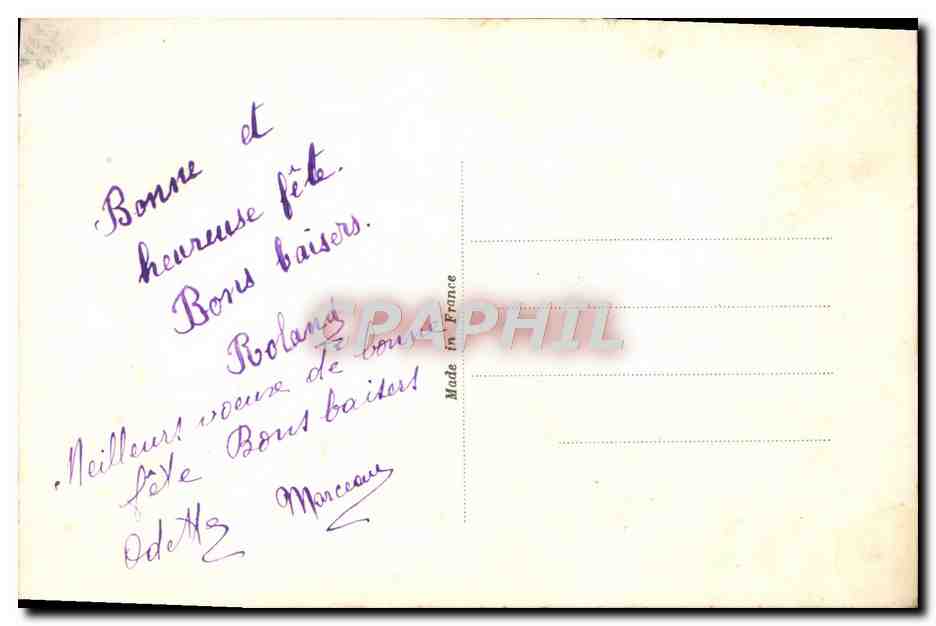 Bonne et
heureuse fête.
Bons baisers.
Roland
Meilleurs voeux de bonne
fête Bons baisers
Odette Marceau
Made in France
CPAPHIL